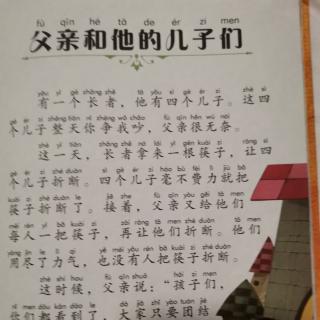 fù qīn hé tā de ér zi men
父亲和他的儿子们
yǒu yí gè zhǎng zhě tā yǒu sì gè ér zi zhè sì
有一个长者，他有四个儿子。这四
gè ér zi zhěng tiān nǐ zhēng wǒ chǎo fù qīn hěn wú nài
个儿子整天你争我吵，父亲很无奈。
zhè yì tiān zhǎng zhě ná lái yì gēn kuài zi ràng sì
这一天，长者拿来一根筷子，让四
gè ér zi zhé duàn sì gè ér zi háo bú fèi lì jiù bǎ
个儿子折断。四个儿子毫不费力就把
kuài zi zhé duàn le jiē zhe fù qīn yòu gěi tā men
筷子折断了。接着，父亲又给他们
měi rén yì bǎ kuài zi zài ràng tā men zhé duàn tā men
每人一把筷子，再让他们折断。他们
yòng jìn le lì qi yě méi yǒu rén bǎ kuài zi zhé duàn
用尽了力气，也没有人把筷子折断。
zhè shí hou fù qīn shuō hái zi men
这时候，父亲说：“孩子们，
nǐ men dōu kàn dào le dà jiā zhǐ yào tuán jié
你们都看到了，大家只要团结